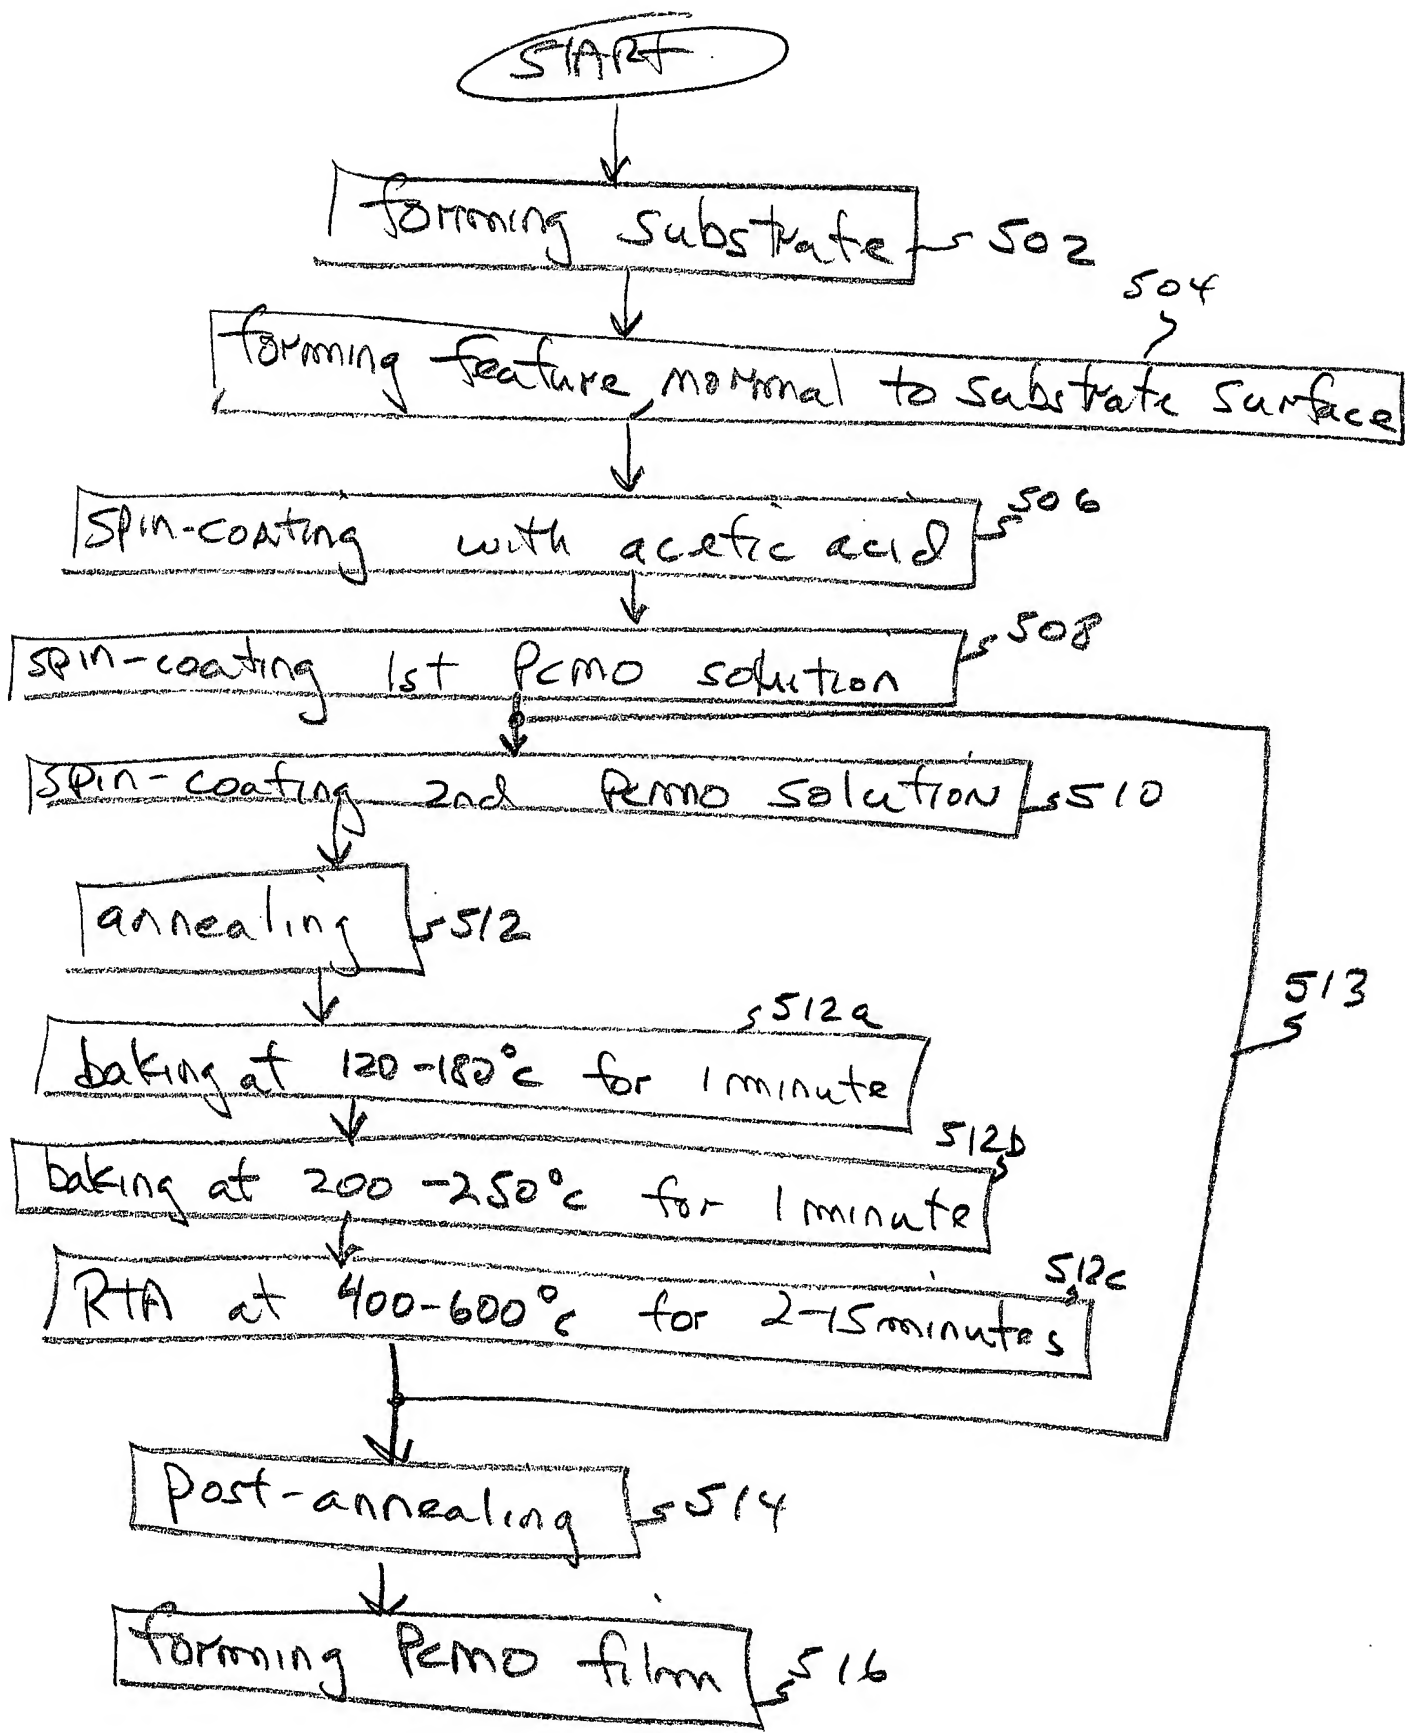 START
forming substrate 502
504
forming feature, normal to substrate surface
506
spin-coating with acetic acid
508
spin-coating 1st PCMO solution
spin-coating 2nd PCMO solution 510
annealing 512
513
512a
baking at 120-180°c for 1 minute
512b
baking at 200-250°c for 1 minute
512c
RTA at 400-600°c for 2-15 minutes
post-annealing 514
forming PCMO film 516